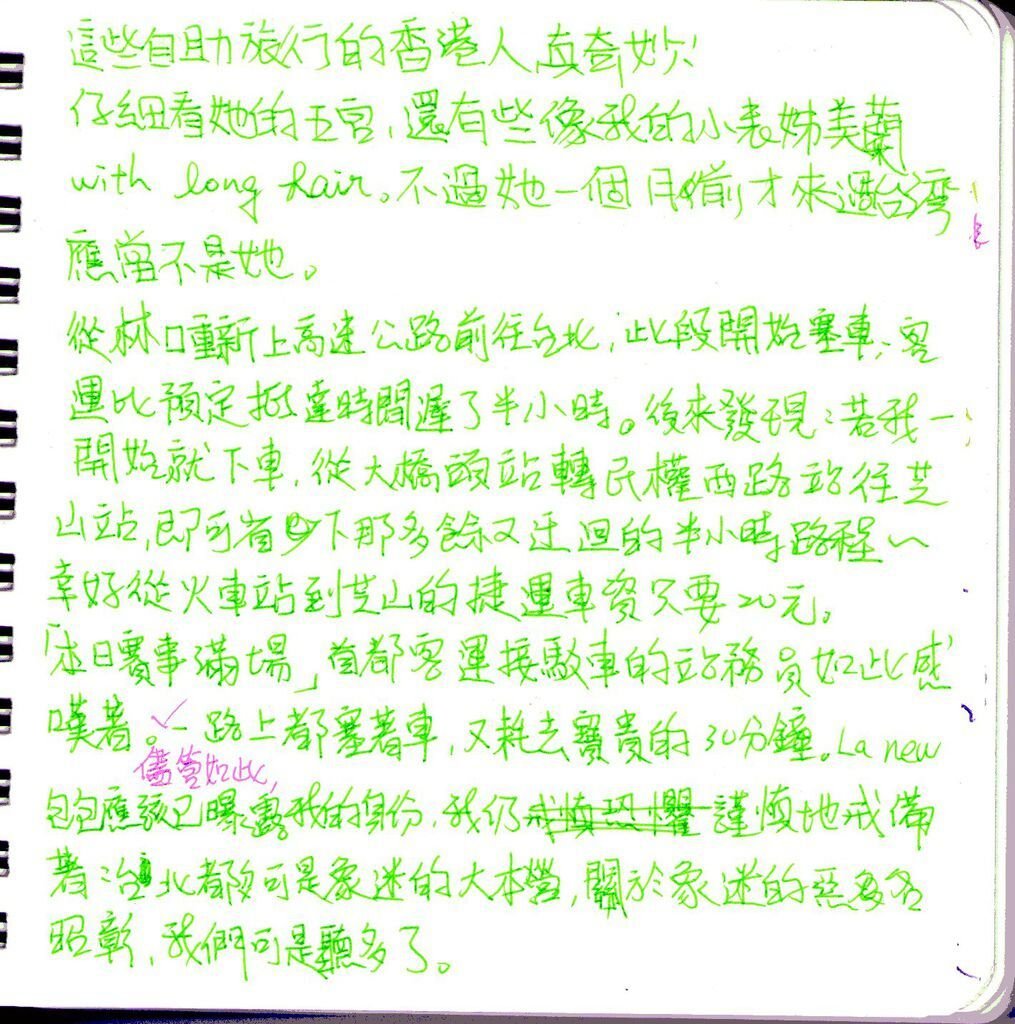 這些自助旅行的香港人真奇妙!
仔細看她的五官，還有些像我的小表姊美蘭
with long hair。不過她一個月前才來過台灣
應當不是她。
從林口重新上高速公路前往台北，此段開始塞車；客
運比預定抵達時間遲了半小時。後來發現：若我一
開始就下車，從大橋頭站轉民權西路站往芝
山站，即可省下那多餘又迂迴的半小時路程～
幸好從火車站到芝山的捷運車資只要20元。
「本日賽事滿場」首都客運接駁車的站務員如此感
嘆著。一路上都塞著車，又耗去寶貴的30分鐘。La new
儘管如此，
包包應該已曝露我的身份，我仍戒慎恐懼謹慎地戒備
著：台北都可是象迷的大本營，關於象迷的惡名
昭彰，我們可是聽多了。